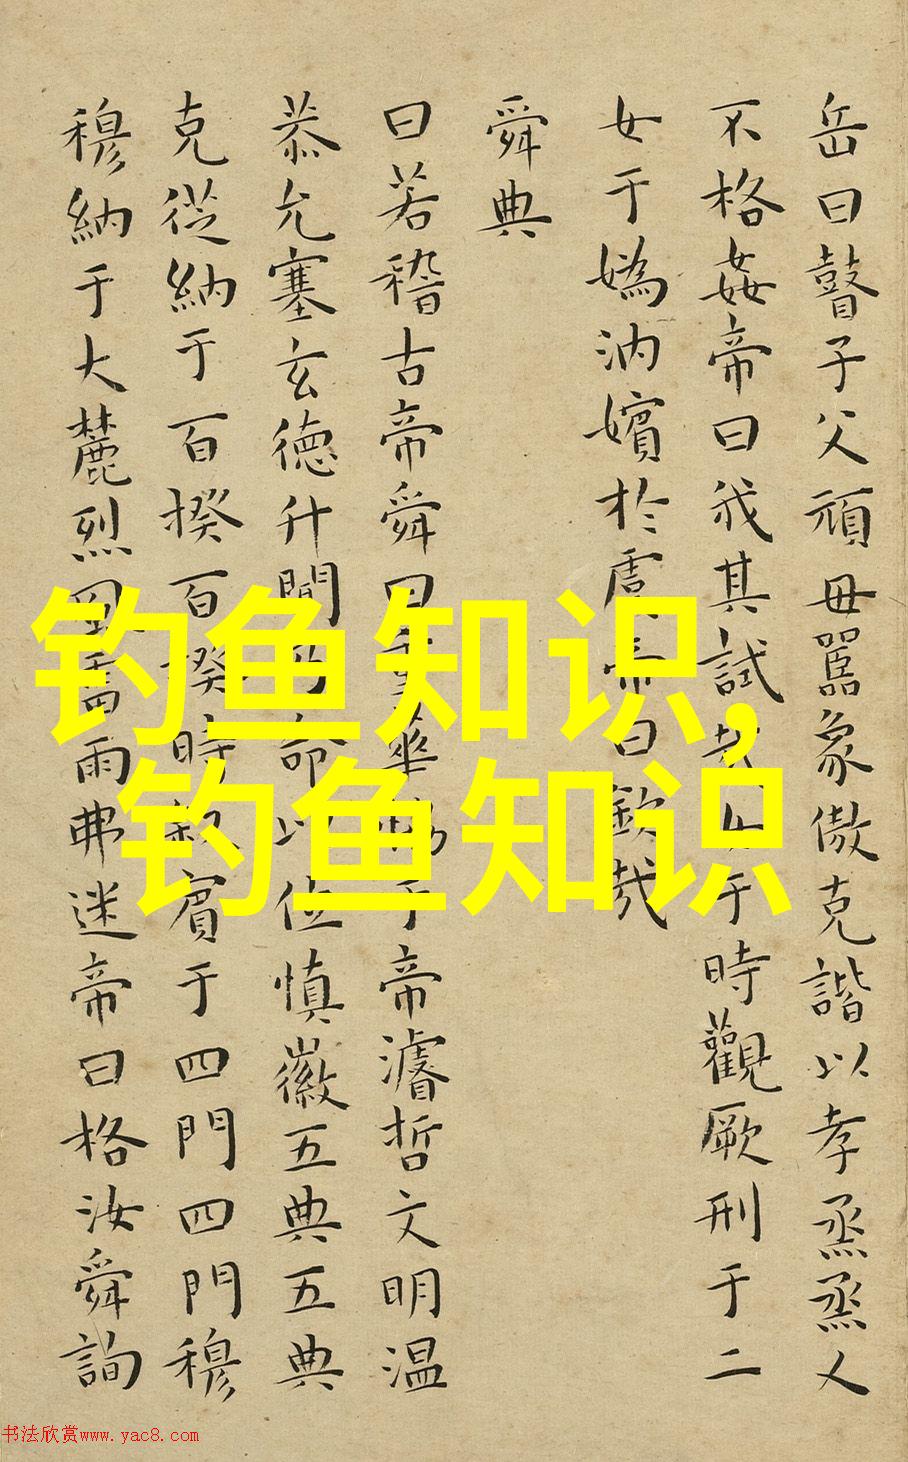 岳曰瞽子父頑毋嚚象傲克諧以孝烝烝乂
不格姦帝曰我其試哉女于時觀厥刑于二
女于媯汭嬪於虞帝曰欽哉
舜典
曰若稽古帝舜曰重華協于帝濬哲文明温
恭允塞玄德升聞乃命以位慎徽五典五典
克從納于百揆百揆時敘賓于四門四門穆
穆納于大麓烈風雷雨弗迷帝曰格汝舜詢
钓鱼知识,
钓鱼知识
书法欣赏www.yac8.com